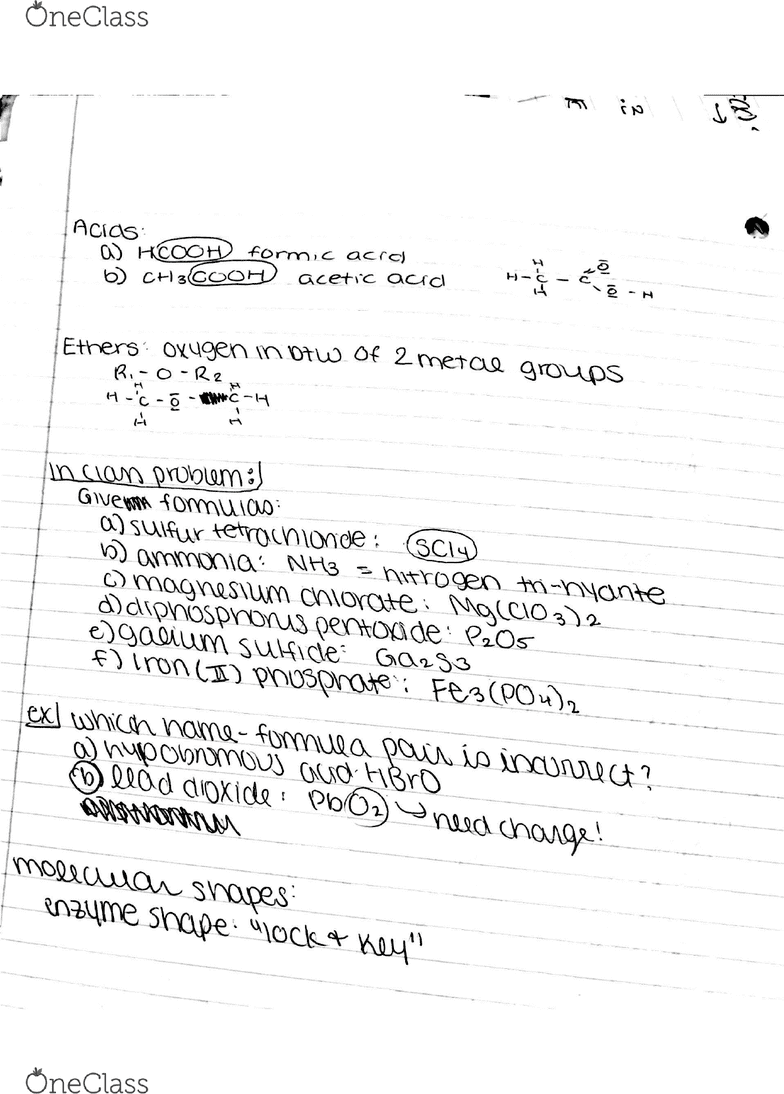 OneClass
in
Acids:
a) HCOOH formic acid
b) CH3COOH acetic acid
H
H - C - C O
H O - H
Ethers: oxygen in btw of 2 metal groups
R1 - O - R2
H H
H - C - O - C - H
H H
In class problem:
Given formulas:
a) sulfur tetrachloride: SCl4
b) ammonia: NH3 = nitrogen
c) magnesium chlorate: Mg(ClO3)2
d) diphosphorus pentoxide: P2O5
e) gallium sulfide: Ga2S3
f) Iron (II) phosphate: Fe3(PO4)2
ex) which name-formula pair is incorrect?
a) hypobromous acid HBrO
b) lead dioxide: PbO2 need charge!
molecular shapes:
enzyme shape: "lock + key"
OneClass